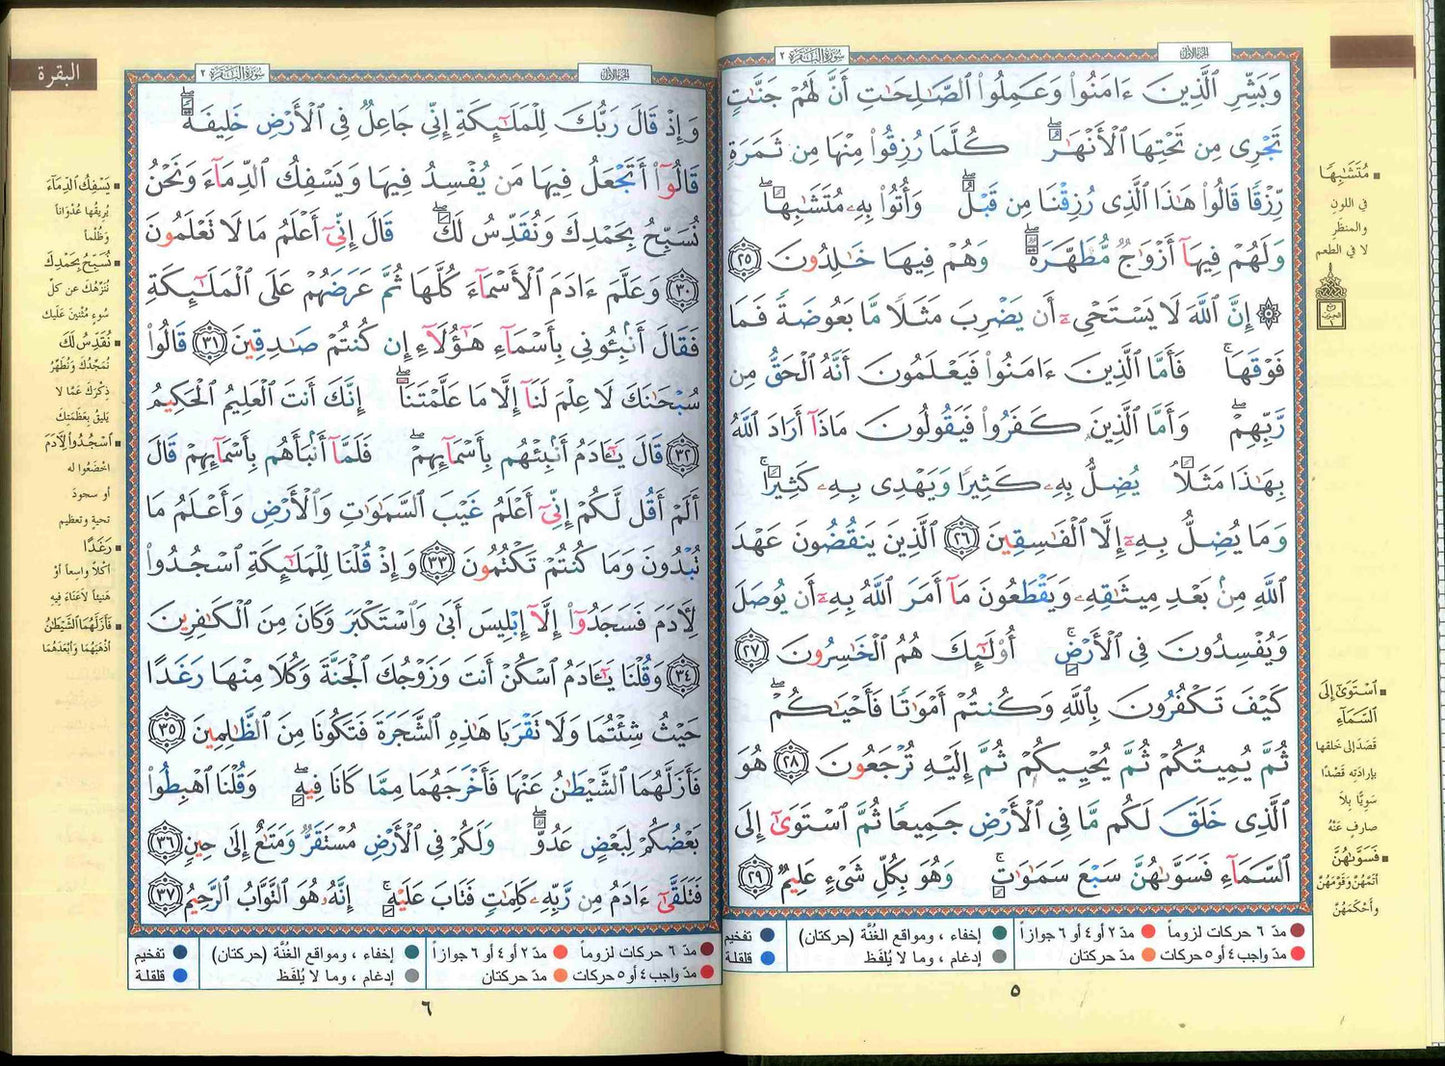 سورة البقرة ٢
الجزء الأول
وَبَشِّرِ ٱلَّذِينَ ءَامَنُوا۟ وَعَمِلُوا۟ ٱلصَّـٰلِحَـٰتِ أَنَّ لَهُمْ جَنَّـٰتٍ
تَجْرِى مِن تَحْتِهَا ٱلْأَنْهَـٰرُ ۖ كُلَّمَا رُزِقُوا۟ مِنْهَا مِن ثَمَرَةٍ
رِّزْقًا قَالُوا۟ هَـٰذَا ٱلَّذِى رُزِقْنَا مِن قَبْلُ ۖ وَأُتُوا۟ بِهِۦ مُتَشَـٰبِهًا ۖ
وَلَهُمْ فِيهَآ أَزْوَٰجٌ مُّطَهَّرَةٌ ۖ وَهُمْ فِيهَا خَـٰلِدُونَ ٢٥
۞ إِنَّ ٱللَّهَ لَا يَسْتَحْىِۦٓ أَن يَضْرِبَ مَثَلًا مَّا بَعُوضَةً فَمَا
فَوْقَهَا ۚ فَأَمَّا ٱلَّذِينَ ءَامَنُوا۟ فَيَعْلَمُونَ أَنَّهُ ٱلْحَقُّ مِن
رَّبِّهِمْ ۖ وَأَمَّا ٱلَّذِينَ كَفَرُوا۟ فَيَقُولُونَ مَاذَآ أَرَادَ ٱللَّهُ
بِهَـٰذَا مَثَلًا ۘ يُضِلُّ بِهِۦ كَثِيرًا وَيَهْدِى بِهِۦ كَثِيرًا ۚ
وَمَا يُضِلُّ بِهِۦٓ إِلَّا ٱلْفَـٰسِقِينَ ٢٦ ٱلَّذِينَ يَنقُضُونَ عَهْدَ
ٱللَّهِ مِنۢ بَعْدِ مِيثَـٰقِهِۦ وَيَقْطَعُونَ مَآ أَمَرَ ٱللَّهُ بِهِۦٓ أَن يُوصَلَ
وَيُفْسِدُونَ فِى ٱلْأَرْضِ ۚ أُو۟لَـٰٓئِكَ هُمُ ٱلْخَـٰسِرُونَ ٢٧
كَيْفَ تَكْفُرُونَ بِٱللَّهِ وَكُنتُمْ أَمْوَٰتًا فَأَحْيَـٰكُمْ ۖ
ثُمَّ يُمِيتُكُمْ ثُمَّ يُحْيِيكُمْ ثُمَّ إِلَيْهِ تُرْجَعُونَ ٢٨ هُوَ
ٱلَّذِى خَلَقَ لَكُم مَّا فِى ٱلْأَرْضِ جَمِيعًا ثُمَّ ٱسْتَوَىٰٓ إِلَى
ٱلسَّمَآءِ فَسَوَّىٰهُنَّ سَبْعَ سَمَـٰوَٰتٍ ۚ وَهُوَ بِكُلِّ شَىْءٍ عَلِيمٌ ٢٩
مُتَشَـٰبِهًا
في اللونِ
والمنظرِ
لا في الطعم
ٱسْتَوَىٰٓ إِلَى
ٱلسَّمَآءِ
قَصَدَ إلى خلقها
بإرادته قَصْدًا
سَوِيًّا بِلَا
صارفٍ عَنْهُ
فَسَوَّىٰهُنَّ
أَتَمَّهُنَّ وَقَوَّمَهُنَّ
وأَحْكَمَهُنَّ
مدّ ٦ حركات لزوماً
مدّ ٢ أو ٤ أو ٦ جوازاً
إخفاء ، ومواقع الغُنَّة (حركتان)
تفخيم
مدّ واجب ٤ أو ٥ حركات
مدّ حركتان
إدغام ، وما لا يُلفَظ
قلقلة
٥
البقرة
سورة البقرة ٢
الجزء الأول
وَإِذْ قَالَ رَبُّكَ لِلْمَلَـٰٓئِكَةِ إِنِّى جَاعِلٌ فِى ٱلْأَرْضِ خَلِيفَةً ۖ
قَالُوٓا۟ أَتَجْعَلُ فِيهَا مَن يُفْسِدُ فِيهَا وَيَسْفِكُ ٱلدِّمَآءَ وَنَحْنُ
نُسَبِّحُ بِحَمْدِكَ وَنُقَدِّسُ لَكَ ۖ قَالَ إِنِّىٓ أَعْلَمُ مَا لَا تَعْلَمُونَ
٣٠ وَعَلَّمَ ءَادَمَ ٱلْأَسْمَآءَ كُلَّهَا ثُمَّ عَرَضَهُمْ عَلَى ٱلْمَلَـٰٓئِكَةِ
فَقَالَ أَنۢبِـُٔونِى بِأَسْمَآءِ هَـٰٓؤُلَآءِ إِن كُنتُمْ صَـٰدِقِينَ ٣١ قَالُوا۟
سُبْحَـٰنَكَ لَا عِلْمَ لَنَآ إِلَّا مَا عَلَّمْتَنَآ ۖ إِنَّكَ أَنتَ ٱلْعَلِيمُ ٱلْحَكِيمُ
٣٢ قَالَ يَـٰٓـَٔادَمُ أَنۢبِئْهُم بِأَسْمَآئِهِمْ ۖ فَلَمَّآ أَنۢبَأَهُم بِأَسْمَآئِهِمْ قَالَ
أَلَمْ أَقُل لَّكُمْ إِنِّىٓ أَعْلَمُ غَيْبَ ٱلسَّمَـٰوَٰتِ وَٱلْأَرْضِ وَأَعْلَمُ مَا
تُبْدُونَ وَمَا كُنتُمْ تَكْتُمُونَ ٣٣ وَإِذْ قُلْنَا لِلْمَلَـٰٓئِكَةِ ٱسْجُدُوا۟
لِـَٔادَمَ فَسَجَدُوٓا۟ إِلَّآ إِبْلِيسَ أَبَىٰ وَٱسْتَكْبَرَ وَكَانَ مِنَ ٱلْكَـٰفِرِينَ
٣٤ وَقُلْنَا يَـٰٓـَٔادَمُ ٱسْكُنْ أَنتَ وَزَوْجُكَ ٱلْجَنَّةَ وَكُلَا مِنْهَا رَغَدًا
حَيْثُ شِئْتُمَا وَلَا تَقْرَبَا هَـٰذِهِ ٱلشَّجَرَةَ فَتَكُونَا مِنَ ٱلظَّـٰلِمِينَ ٣٥
فَأَزَلَّهُمَا ٱلشَّيْطَـٰنُ عَنْهَا فَأَخْرَجَهُمَا مِمَّا كَانَا فِيهِ ۖ وَقُلْنَا ٱهْبِطُوا۟
بَعْضُكُمْ لِبَعْضٍ عَدُوٌّ ۖ وَلَكُمْ فِى ٱلْأَرْضِ مُسْتَقَرٌّ وَمَتَـٰعٌ إِلَىٰ حِينٍ ٣٦
فَتَلَقَّىٰٓ ءَادَمُ مِن رَّبِّهِۦ كَلِمَـٰتٍ فَتَابَ عَلَيْهِ ۚ إِنَّهُۥ هُوَ ٱلتَّوَّابُ ٱلرَّحِيمُ ٣٧
يَسْفِكُ ٱلدِّمَآءَ
يُريقُها عُدْوَاناً
وَظُلْماً
نُسَبِّحُ بِحَمْدِكَ
نُنَزِّهُكَ عن كلِّ
سُوءٍ مُثْنِينَ عَلَيك
نُقَدِّسُ لَكَ
نُمَجِّدُكَ وَنُطَهِّرُ
ذِكْرَكَ عَمَّا لا
يَليقُ بِعَظَمَتِكَ
ٱسْجُدُوا۟ لِـَٔادَمَ
اخْضَعُوا له
أو سجودَ
تحيةٍ وتعظيم
رَغَدًا
أكْلاً واسِعاً أوْ
هَنِيئاً لا عَنَاءَ فِيهِ
فَأَزَلَّهُمَا ٱلشَّيْطَـٰنُ
أَذْهَبَهُمَا وَأَبْعَدَهُمَا
مدّ ٦ حركات لزوماً
مدّ ٢ أو ٤ أو ٦ جوازاً
إخفاء ، ومواقع الغُنَّة (حركتان)
تفخيم
مدّ واجب ٤ أو ٥ حركات
مدّ حركتان
إدغام ، وما لا يُلفَظ
قلقلة
٦